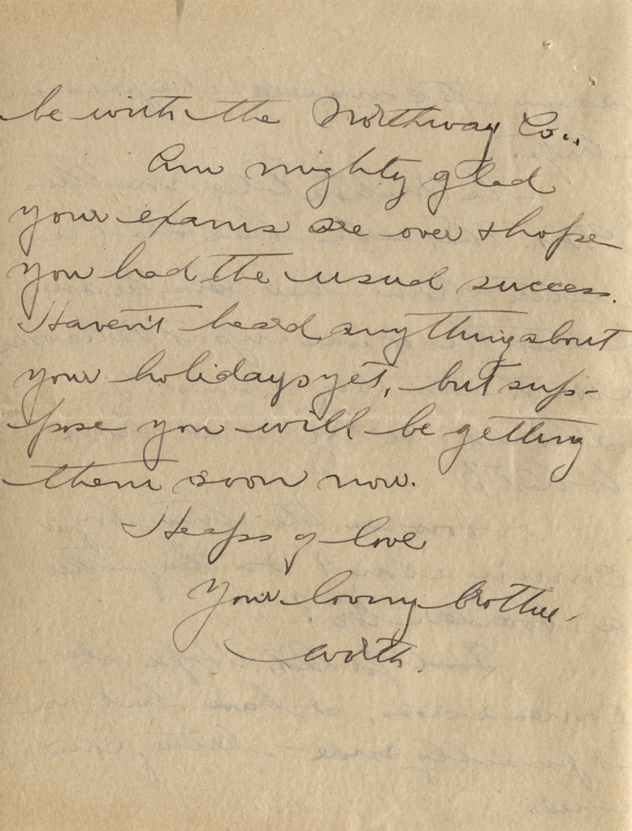 be with the Northway Co..
Am mighty glad
your exams are over & hope
you had the usual success.
Haven't heard anything about
your holidays yet, but sup-
pose you will be getting
them soon now.
Heaps of love
Your loving brother.
Worth.